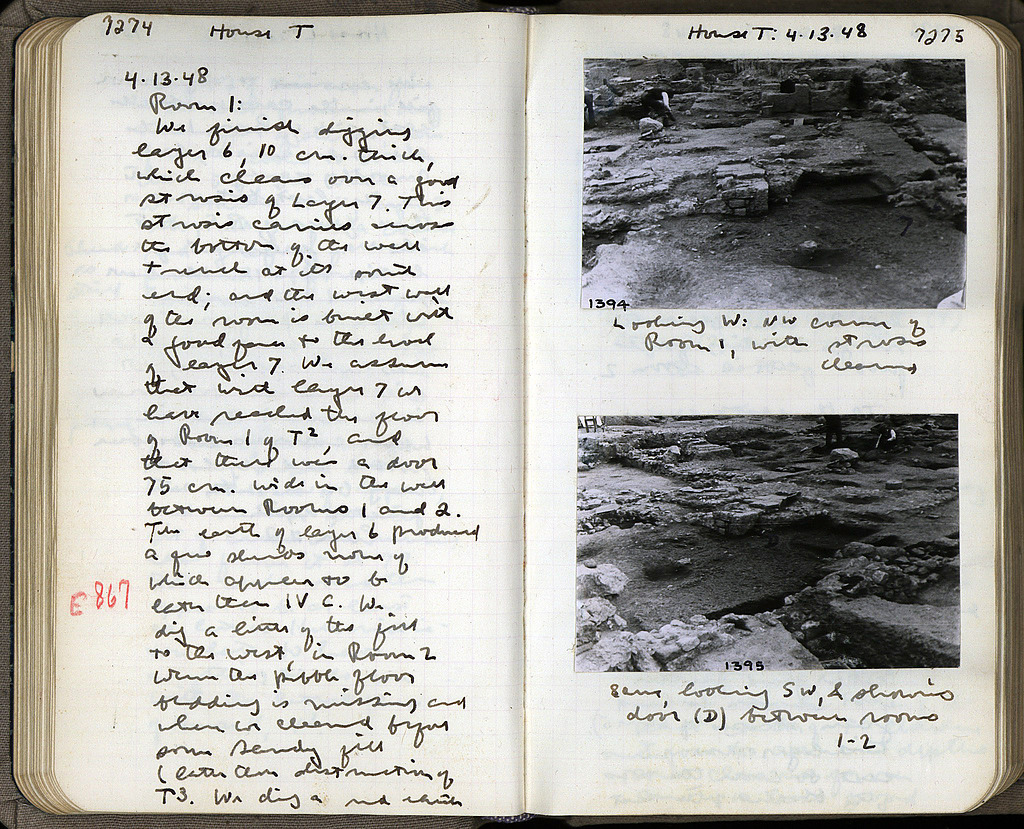 7274 House T
4.13.48
Room 1:
We finish digging
layer 6, 10 cm. thick,
which cleans over a good
strosis of Layer 7. This
strosis carries across
the bottom of the well
trench at its south
end; and the west wall
of the room is built with
a good face to the level
of layer 7. We assume
that with layer 7 we
have reached the floor
of Room 1 of T², and
that there was a door
75 cm. wide in the wall
between Rooms 1 and 2.
The earth of layer 6 produced
a few sherds none of
which appear to be
E 867
later than IV C. We
dig a little of the fill
to the west, in Room 2
where the pebble floor
bedding is missing and
where we cleaned before
some sandy fill
(later than destruction of
T3. We dig a red earth
House T: 4.13.48 7275
1394
Looking W: NW corner of
Room 1, with strosis
cleaned
1395
Same, looking SW, & showing
door (D) between rooms
1-2